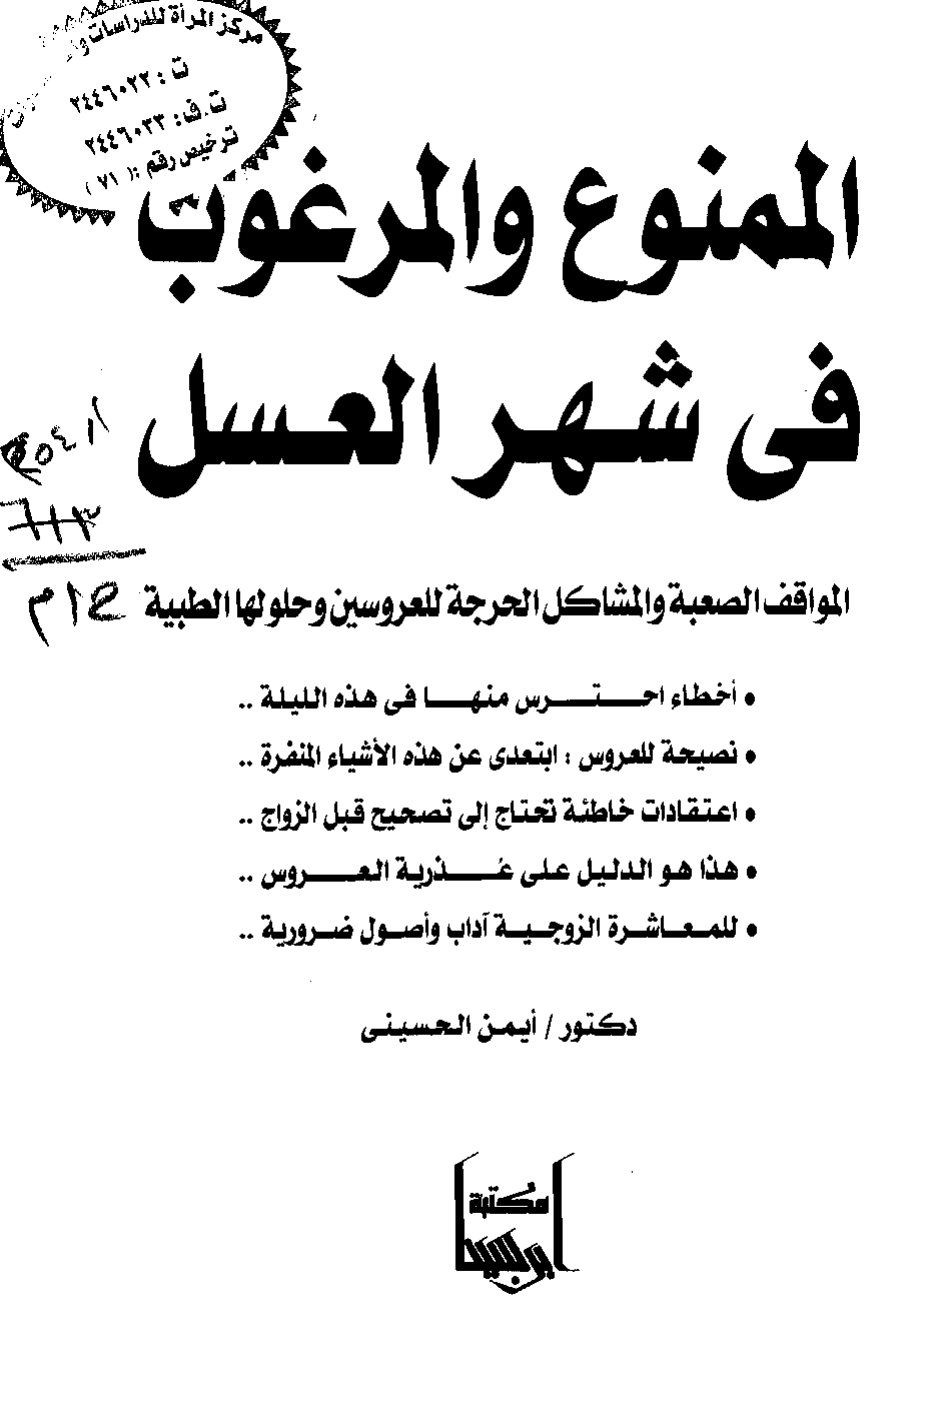 مركز المرأة للدراسات
ت : ٢٤٤٦٠٢٢
ت.ف: ٢٤٤٦٠٣٣
ترخيص رقم :( ٧١ )
الممنوع والمرغوب
فى شهر العسل
المواقف الصعبة والمشاكل الحرجة للعروسين وحلولها الطبية
• أخطاء احتـــرس منهـــا فى هذه الليلة ..
• نصيحة للعروس : ابتعدى عن هذه الأشياء المنفرة ..
• اعتقادات خاطئة تحتاج إلى تصحيح قبل الزواج ..
• هذا هو الدليل على عـــذرية العـــروس ..
• للمـعـاشـرة الزوجـيـة آداب وأصـول ضـرورية ..
دكتور / أيمن الحسينى
مكتبة
ابن سينا